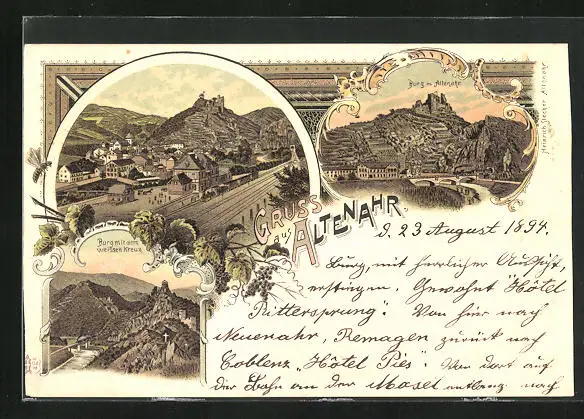 Burg m. Altenahr
Heinrich Stecker, Altenahr
GRUSS
aus
ALTENAHR.
Burg mit dem
weissen Kreuz
d. 23 August 1894.
Burg, mit herrlicher Aussicht,
erstiegen. Gewohnt "Hôtel
Rittersprung". Von hier nach
Neuenahr, Remagen zurück nach
Coblenz, "Hôtel Pies". Von dort auf
der Bahn an der Mosel entlang nach